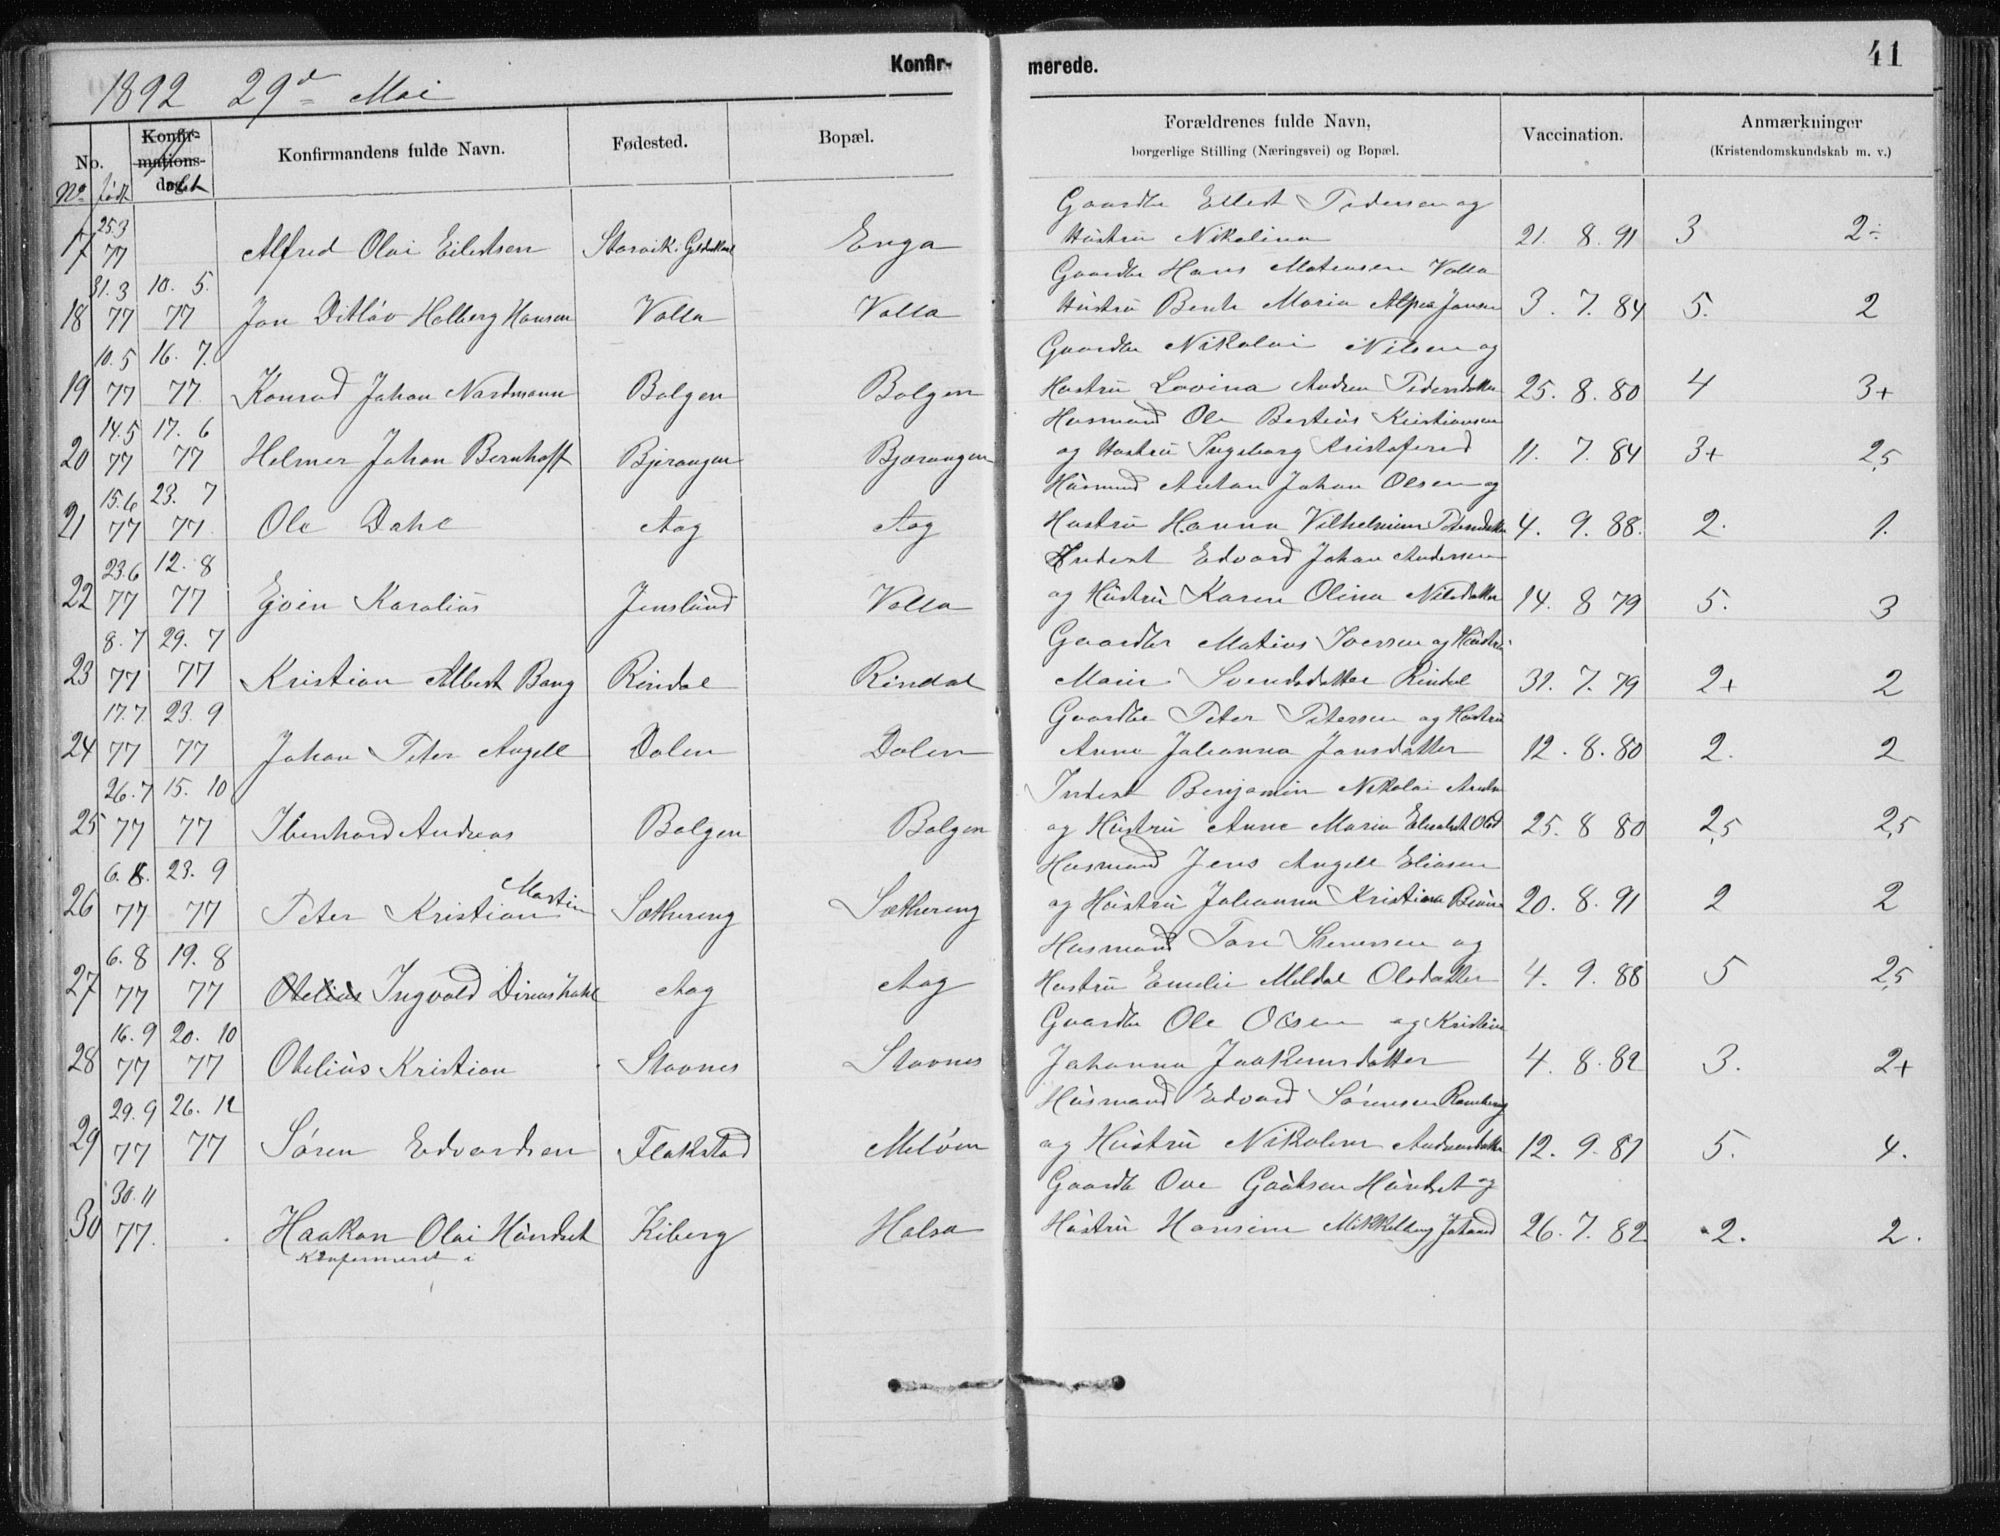 1892 29d Mai
Konfir-
merede.
41
No. Konfir-mations-dag. Konfirmandens fulde Navn. Fødested. Bopæl. Forældrenes fulde Navn, borgerlige Stilling (Næringsvei) og Bopæl. Vaccination. Anmærkninger (Kristendomskundskab m. v.)
No født døbt
Gaardbr Ellert Pedersen og
17 25.3 77 Alfred Olai Eilertsen Storvik i Enga Hustru Nikolina 21. 8. 91 3 2÷
Gaardbr Hans Mateusen Valla
18 31.3 77 10. 5. 77 Jon Ditløv Holberg Hansen Valla Valla Hustru Bente Maria Jansen 3. 7. 84 5. 2
Gaardbr Nikolai Nilsen og
19 10.5 77 16. 7. 77. Konrad Johan Nordmann Bolgen Bolgen Hustru Lovina Andrea Pedersdatter 25. 8. 80 4 3+
Husmand Ole Bertius Kristiansen
20 14.5 77 17. 6 77 Helmer Johan Bernhoft Bjerangen Bjærangen og Hustru Ingeborg Kristofersd 11. 7. 84 3+ 2,5
Husmand Anton Johan Olsen og
21 15.6 77 23. 7 77. Ole Dahl Aag Aag Hustru Hanna Vilhelmine Petersdatter 4. 9. 88. 2. 1.
Inderst Edvard Johan Andersen
22 23.6 77 12. 8 77 Ejvin Karolius Jenslund Valla og Hustru Karen Olina Nilsdatter 14. 8 79 5. 3
Gaardbr Matius Iversen og Hustru
23 8. 7 77 29. 7 77 Kristian Albert Bang Rindal Rindal Marie Svendsdatter Rindal 31. 7. 79 2+ 2
Gaardbr Peter Petersen og Hustru
24 17.7. 77 23. 9 77 Johan Peter Angell Dalen Dalen Anne Johanna Jansdatter 12. 8. 80 2. 2
Inderst Benjamin Nikolai
25 26.7 77 15. 10 77 Ibenhard Andreas Bolgen Bolgen og Hustru Anne Maria Elisabet Olsd 25. 8 80 2,5 2,5
Husmand Jens Angell Eliasen
26 6. 8. 77 23. 9 77 Peter Kristian Martin Sætthereng Sætthereng og Hustru Johanna Kristina 20. 8. 91 2 2
Husmand Tore Sørensen og
27 6. 8 77 19. 8 77 Otelius Ingvald Dinus Aag Aag Hustru Emelie Meldal Olsdatter 4. 9. 88 5 2,5
Gaardbr Ole Olsen og Kristine
28 16. 9 77 20. 10 77 Otelius Kristian Stavnes Stavnes Johanna Joakimsdatter 4. 8. 82 3. 2+
Husmand Edvard Sørensen Ramberg
29 29. 9 77 26. 12 77 Søren Edvardsen Flakstad Meløen og Hustru Nikoline Andreasdatter 12. 9. 81 5. 4.
Gaardbr Ove Hundset og
30 30. 11 77. Haakon Olai Hundset Kiberg Halsa Hustru Hansine Mikkelborg 26. 7. 82 2. 2.
Konfirmeret i